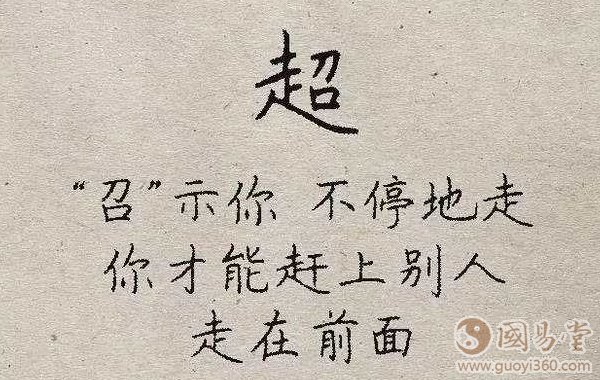 超
“召”示你 不停地走
你才能赶上别人
走在前面
國易堂
www.guoyi360.com